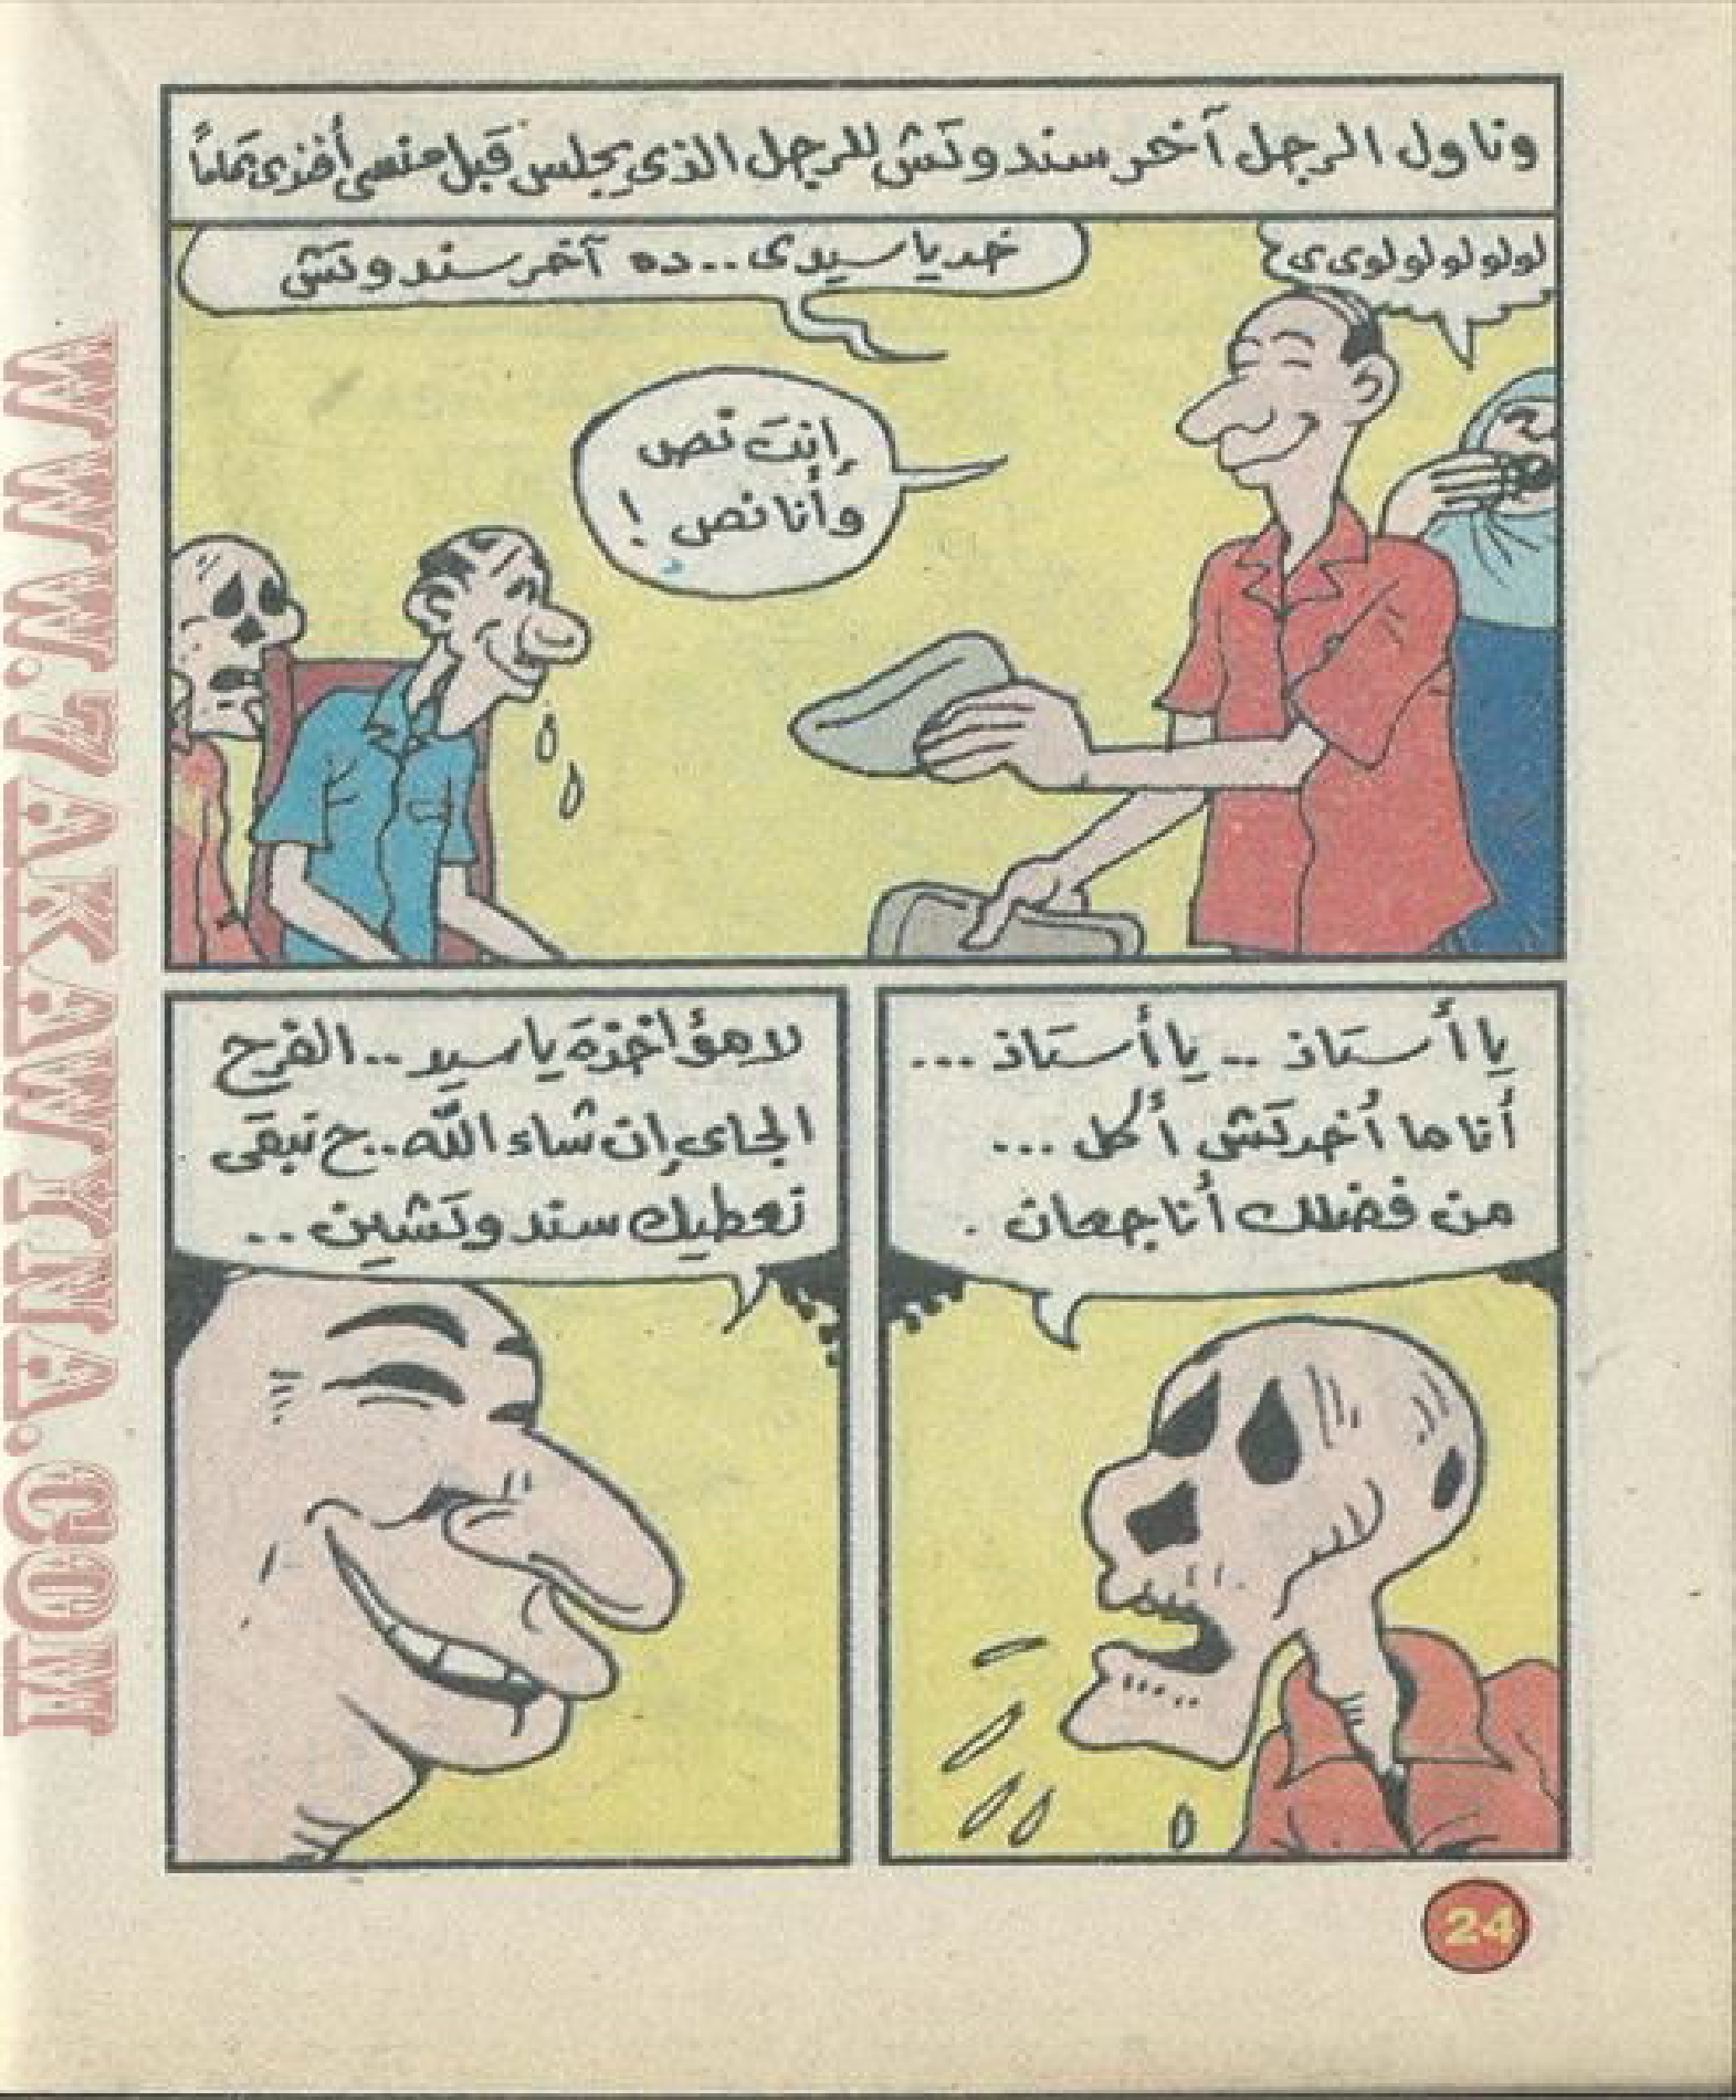 وناول الرجل آخر سندوتش للرجل الذى يجلس قبل منسى أفندى تماماً
لولولولولوى ى
خد يا سيدى.. ده آخر سندوتش
إنتَ نص
وأنا نص !
يا أستاذ .. يا أستاذ ...
أنا ما أخدتش أكل ...
من فضلك أنا جعان .
لا مؤاخذة يا سيد .. الفرح
الجاى إن شاء الله .. ح نبقى
نعطيك سندوتشين ..
24
WWW.ZAKAWINA.COM